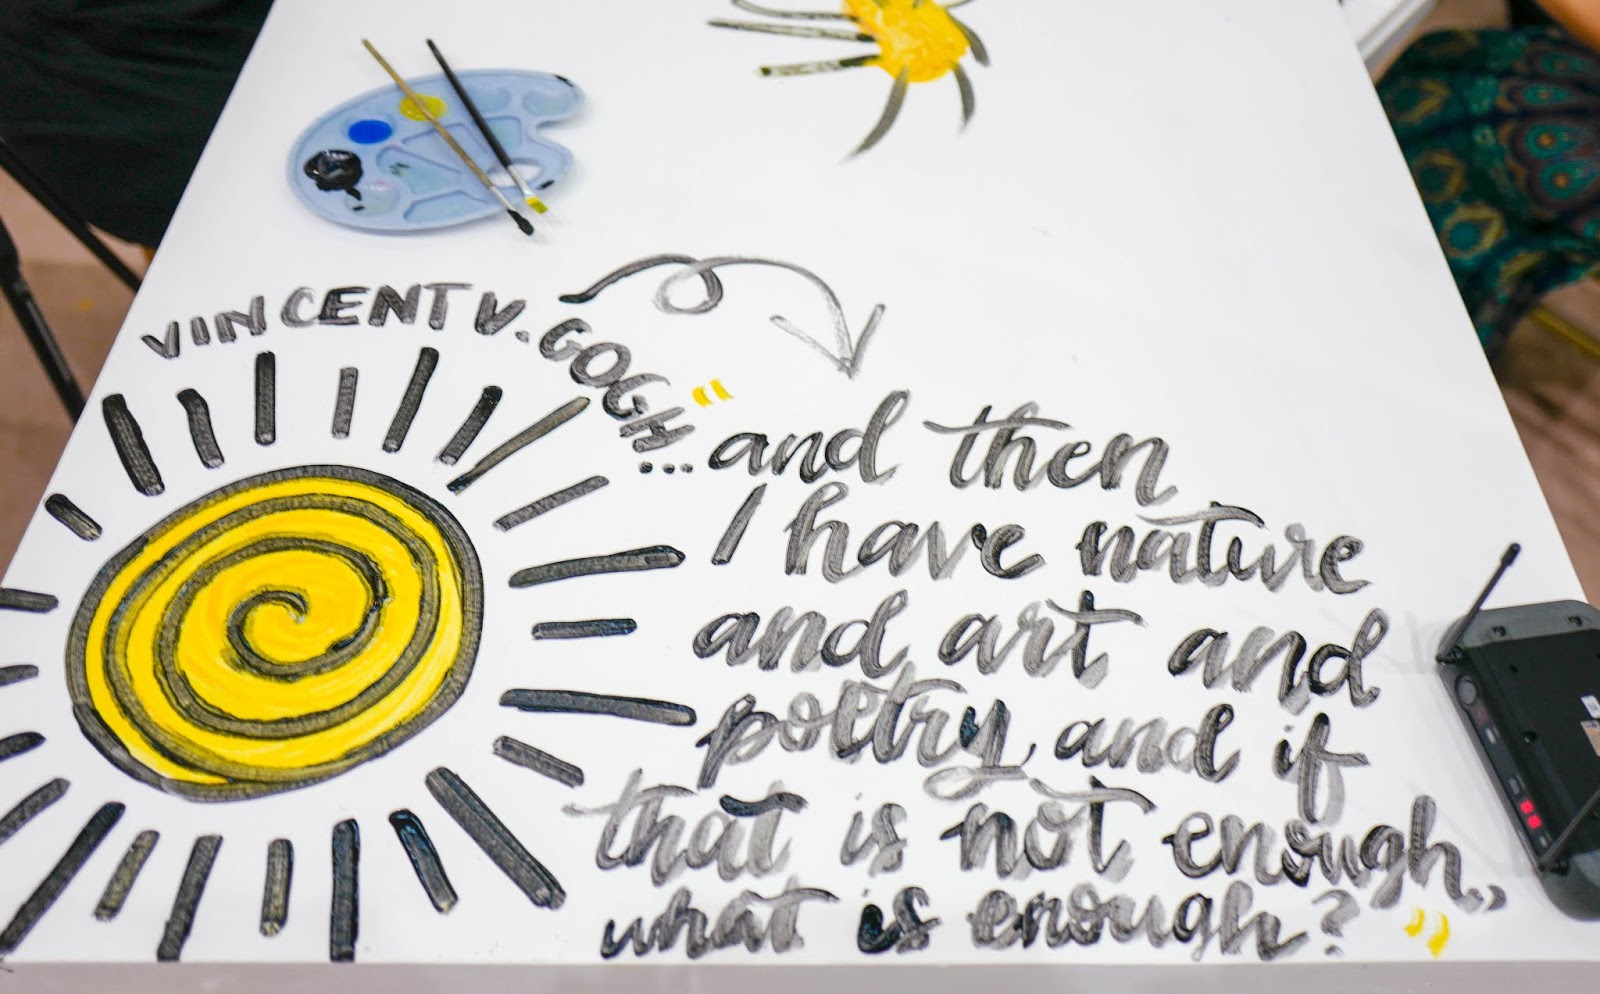 VINCENT V. GOGH...
"and then
I have nature
and art and
poetry, and if
that is not enough,
what is enough?"